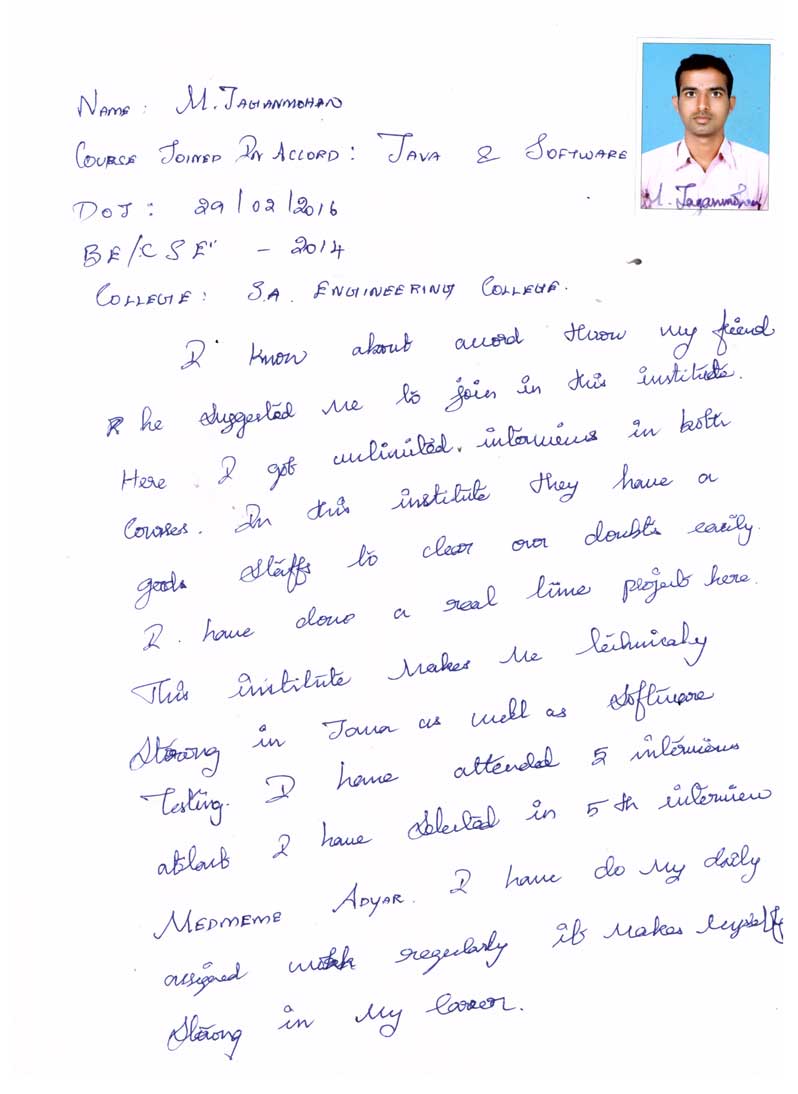 NAME: M. JAGANMOHAN
COURSE JOINED IN ACCORD: JAVA & SOFTWARE
M. Jaganmohan
DOJ: 29/02/2016
BE/CSE" - 2014
COLLEGE: S.A. ENGINEERING COLLEGE.
I know about accord throw my friend
he suggested me to join in this institute.
Here I got unlimited interviews in both
Courses. In this institute they have a
good staffs to clear our doubts easily.
I have done a real time project here.
This institute makes me technicaly
Strong in Java as well as software
Testing. I have attended 5 interviews
atlast I have selected in 5th interview
MEDMEME ADYAR. I have do my daily
assigned work regularly it makes myself
Strong in my career.